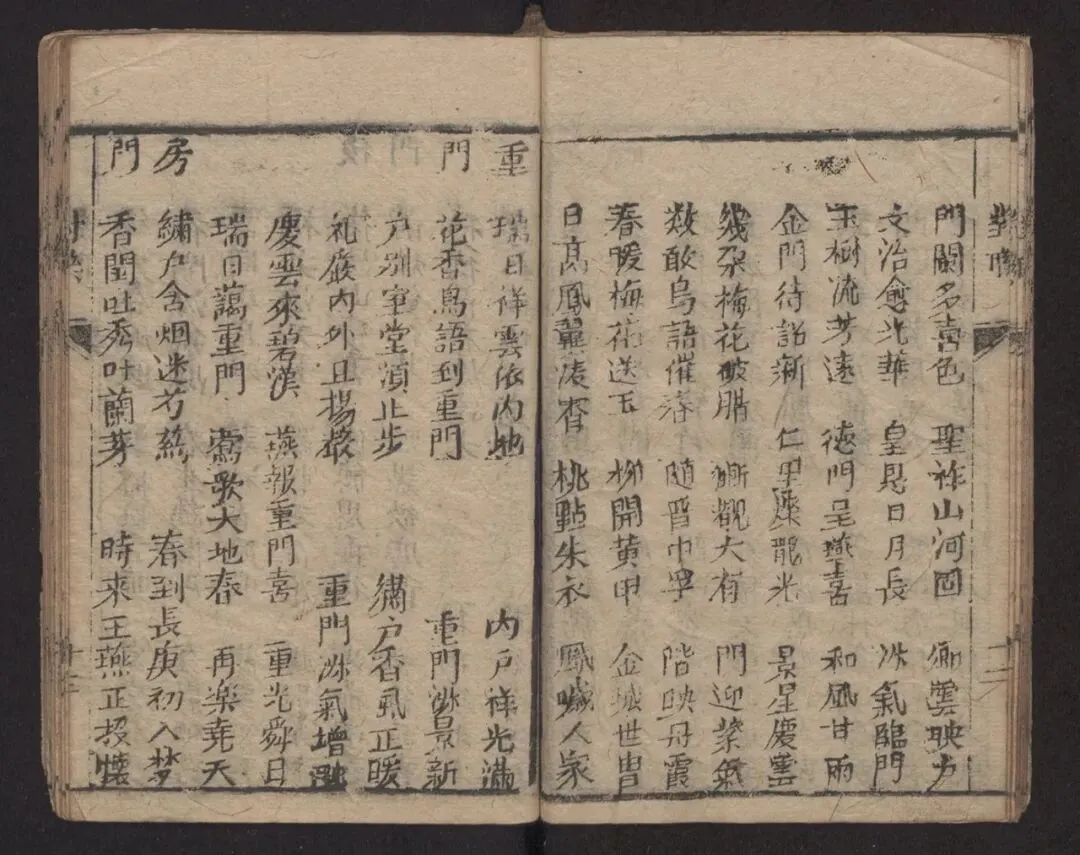 門闌多喜色 聖祚山河固 卿雲映方
文治愈光華 皇恩日月長 淑氣臨門
玉樹流芳遠 德門呈燕喜 和風甘雨
金門待詔新 仁里聚龍光 景星慶雲
幾朵梅花破腊 漸觀大有 門迎紫氣
数敢鸟語催春 随晋中孚 階映丹霞
春暖梅花送玉 柳開黄甲 金城世胄
日高鳳翼凌霄 桃點朱衣 鳳嘴人家
重 瑞日祥雲依内地 内户祥光滿
門 花香鳥語到重門 重門淑景新
户别室堂須止步 繡户香風正暖
礼嚴内外且揚聲 重門淑氣增融
慶雲來碧漢 燕報重門喜 重光舜日
瑞日藹重門 鶯歌大地春 再樂堯天
房 繡户含烟迷芳 春到長庚初入梦
門 香閨吐秀叶蘭芽 時來玉燕正投懷
十二
十三